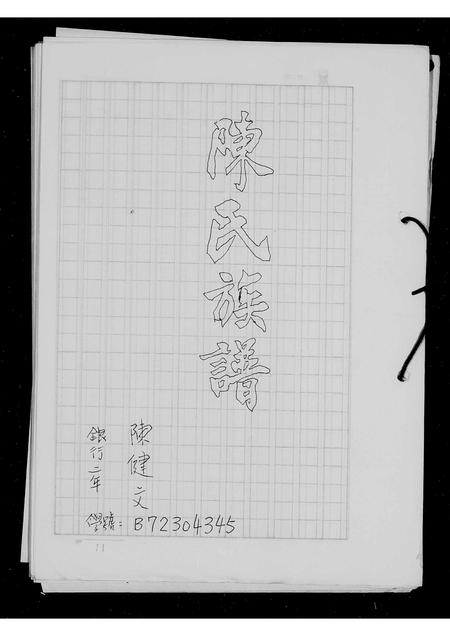 陳氏族譜
陳健文
銀行二年
學號：B72304345